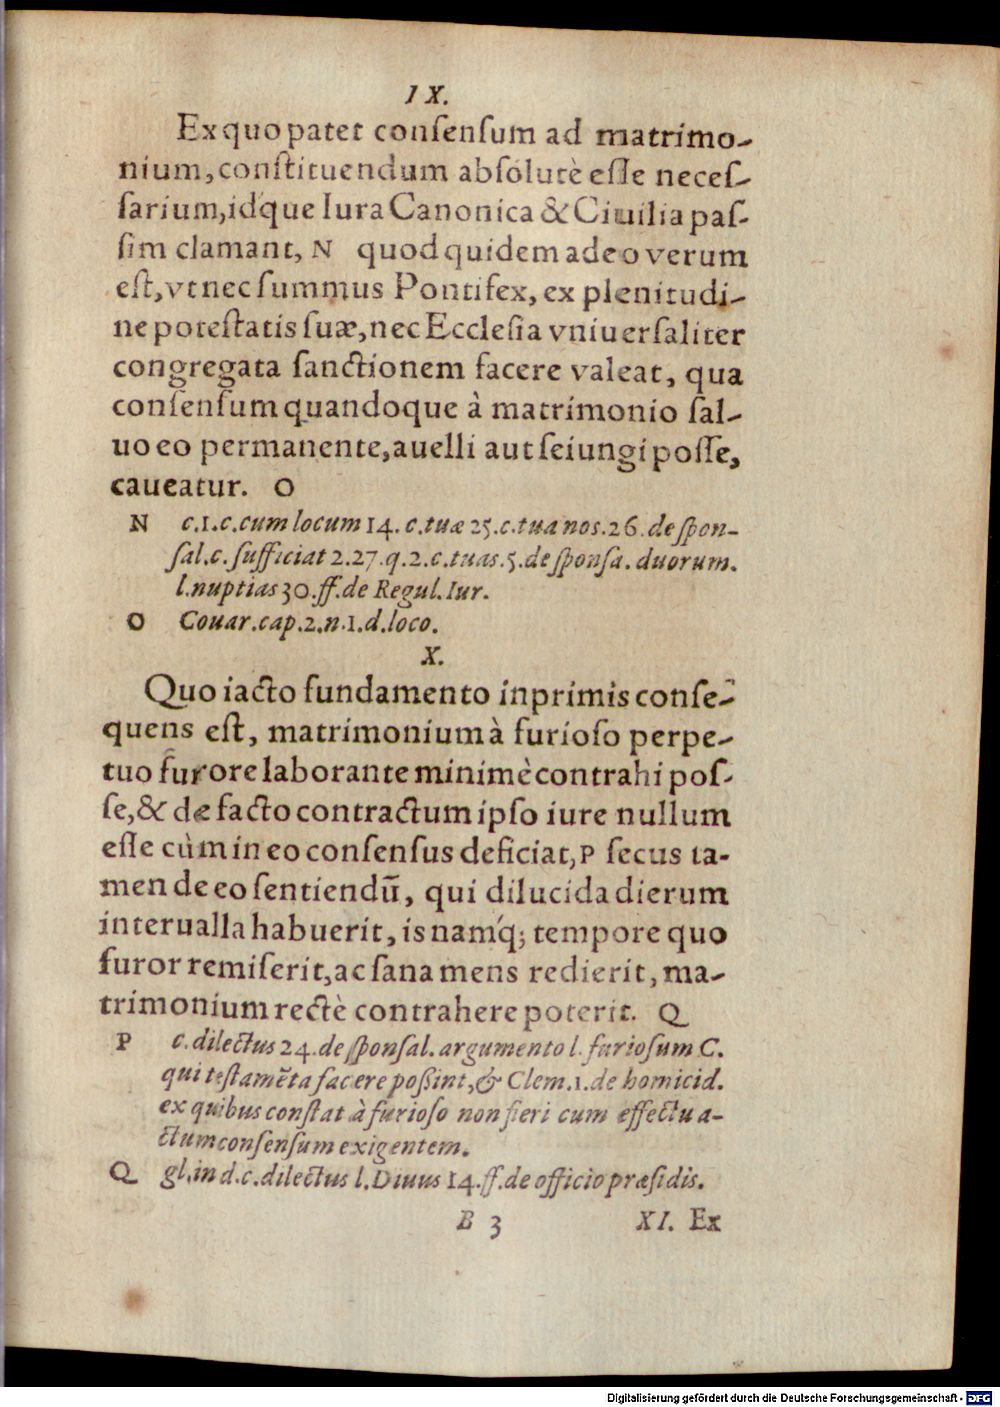 IX.
Ex quo patet conſenſum ad matrimo-
nium, conſtituendum abſolutè eſſe neceſ-
ſarium, idque Iura Canonica & Ciuilia paſ-
ſim clamant, N quod quidem adeo verum
eſt, vt nec ſummus Pontifex, ex plenitudi-
ne poteſtatis ſuæ, nec Eccleſia vniuerſaliter
congregata ſanctionem facere valeat, qua
conſenſum quandoque à matrimonio ſal-
uo eo permanente, auelli aut ſeiungi poſſe,
caueatur. O
N c.1.c.cum locum 14. c.tuæ 25.c.tua nos.26.de ſpon-
ſal.c.ſufficiat 2.27.q.2.c.tuas.5.de ſponſa. duorum.
l.nuptias 30.ff.de Regul.Iur.
O Couar.cap.2.n.1.d.loco.
X.
Quo iacto fundamento inprimis conſe-
quens eſt, matrimonium à furioſo perpe-
tuo furore laborante minimè contrahi poſ-
ſe, & de facto contractum ipſo iure nullum
eſſe cùm in eo conſenſus deficiat, P ſecus ta-
men de eo ſentiendū, qui dilucida dierum
interualla habuerit, is namq́; tempore quo
furor remiſerit, ac ſana mens redierit, ma-
trimonium rectè contrahere poterit. Q
P c. dilectus 24.de ſponſal. argumento l. furioſum C.
qui teſtamēta facere poſsint, & Clem.1.de homicid.
ex quibus conſtat à furioſo non fieri cum effectu a-
ctum conſenſum exigentem.
Q gl.in d.c.dilectus l.Diuus 14.ff.de officio præſidis.
B 3 XI. Ex
Digitalisierung gefördert durch die Deutsche Forschungsgemeinschaft - DFG